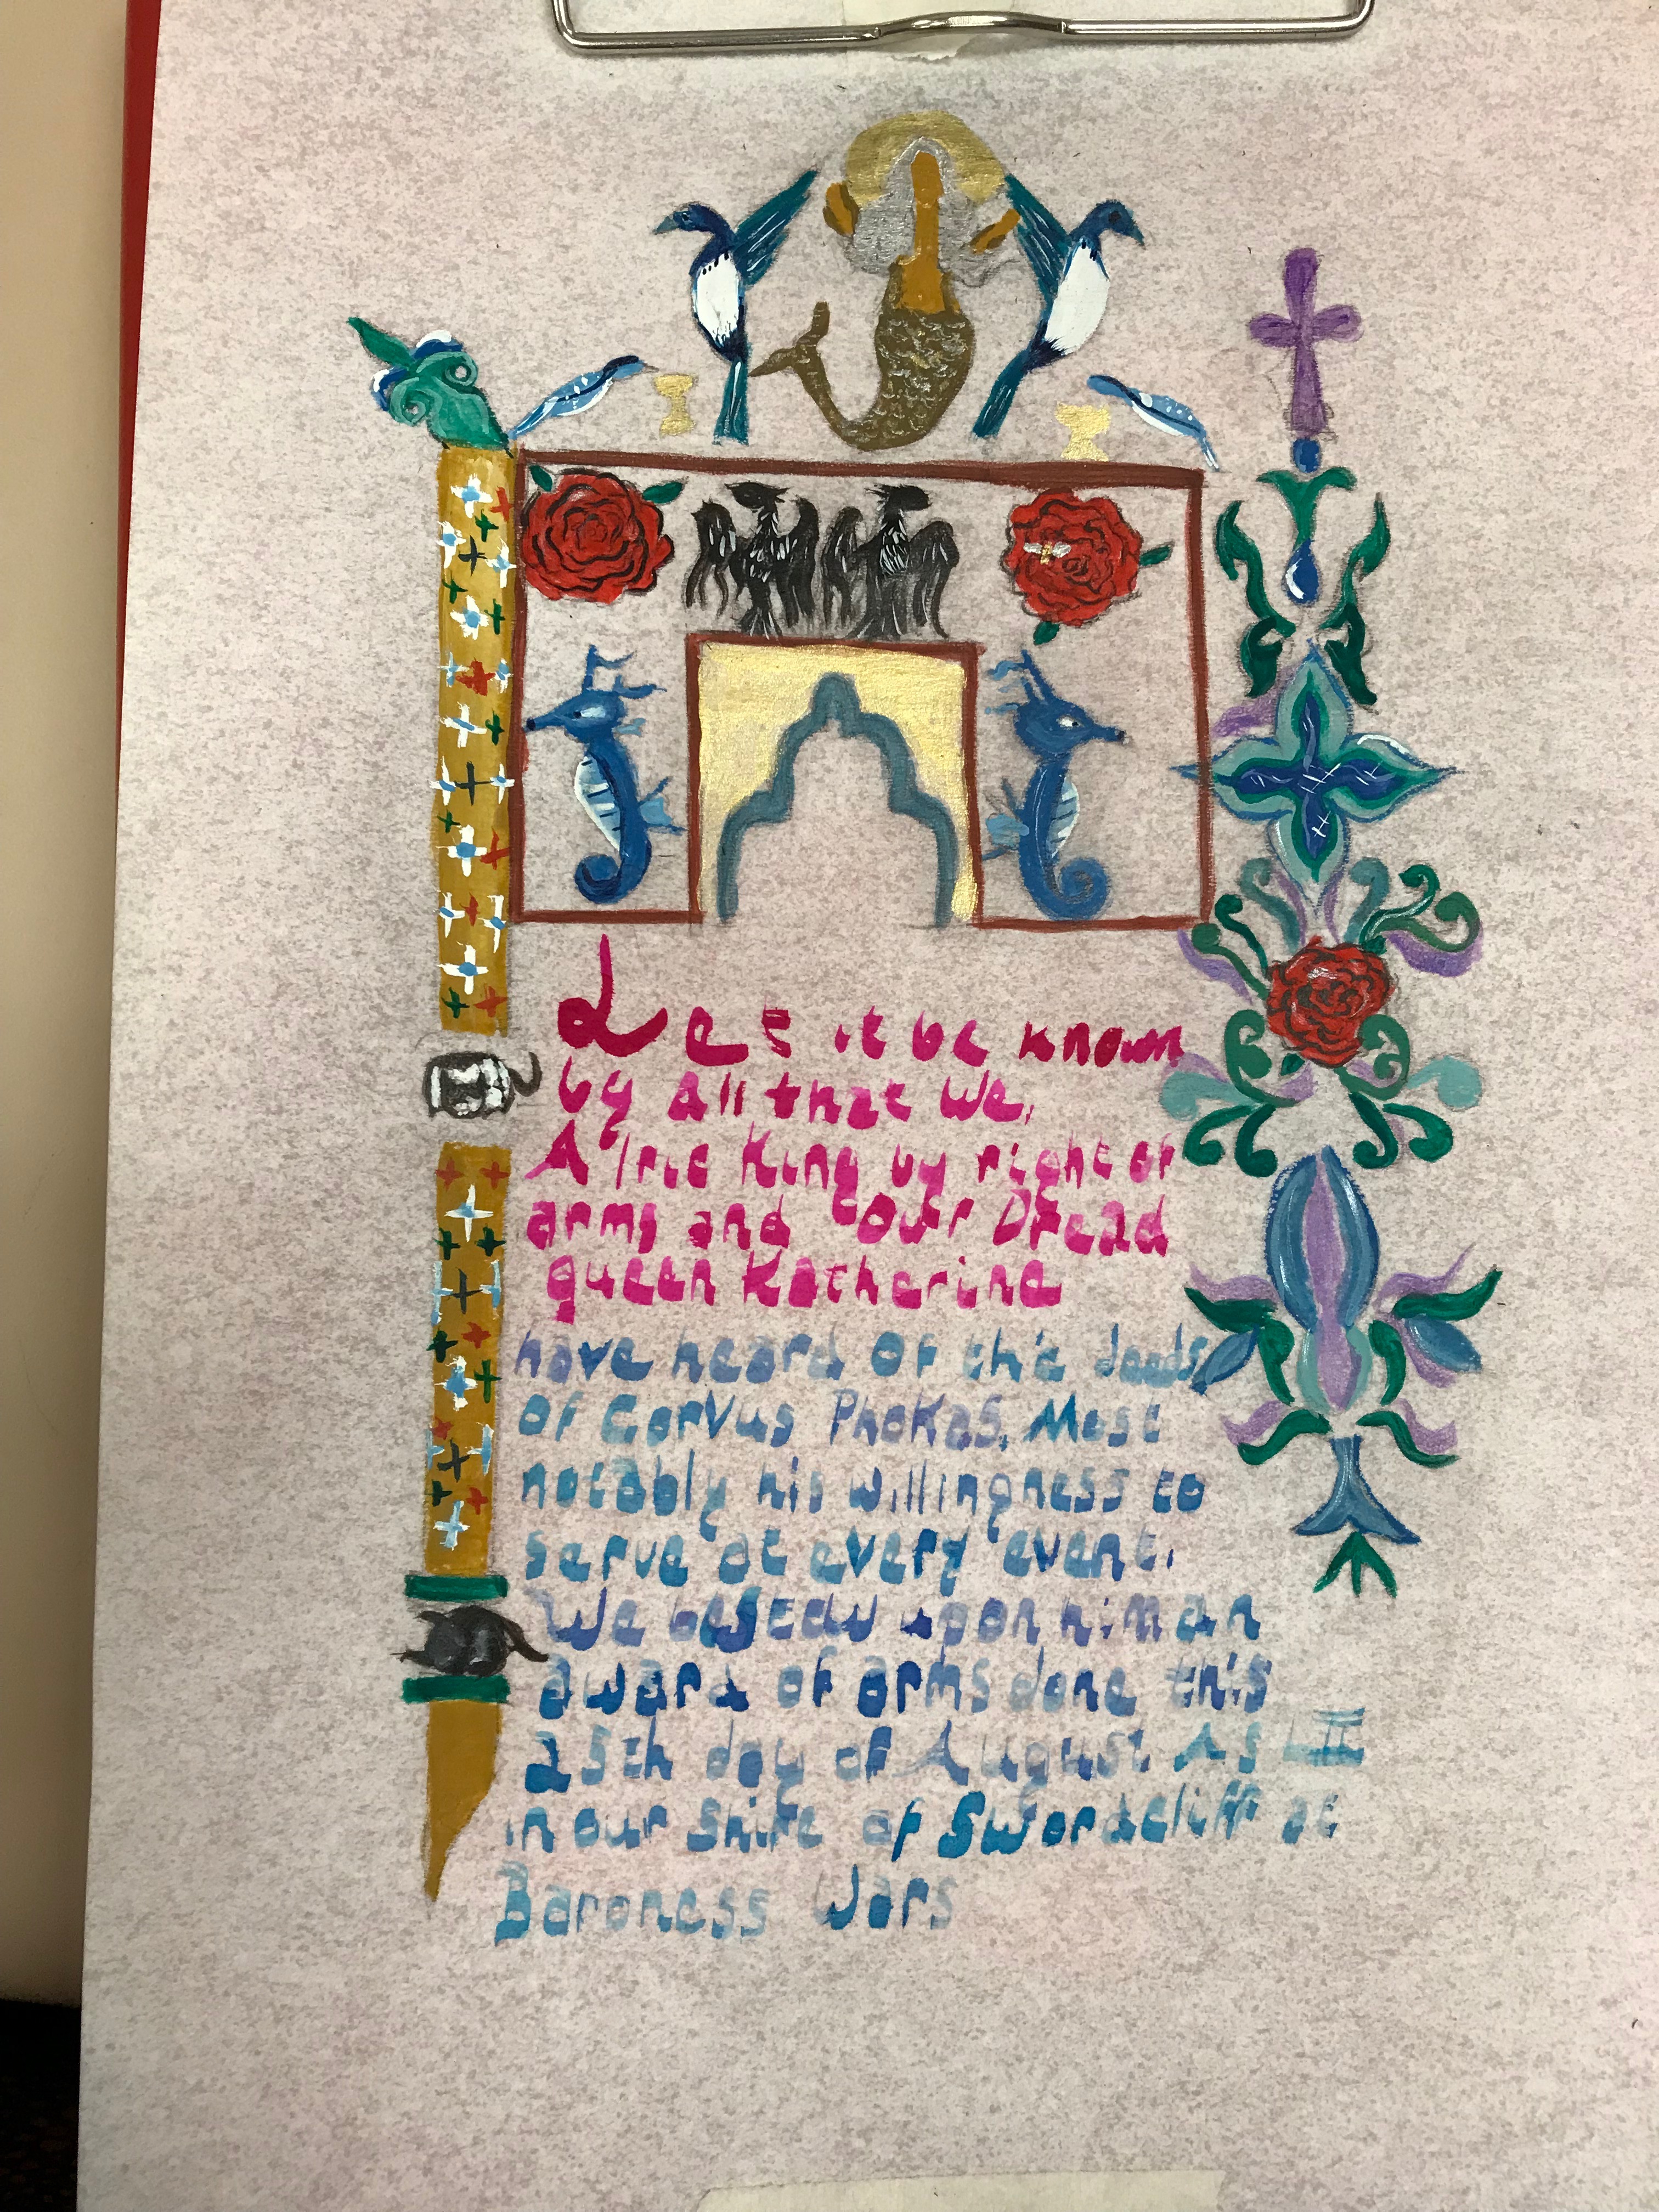 Let it be known
by All that We,
Alric King by right of
arms and Our Dread
queen Katherine
have heard of the deeds
Of Corvus Phokas. Most
notably his willingness to
serve at every event.
We bestow upon him an
award of arms done this
25th day of August. As LII
in our Shire of Swordcliff at
Baroness Wars